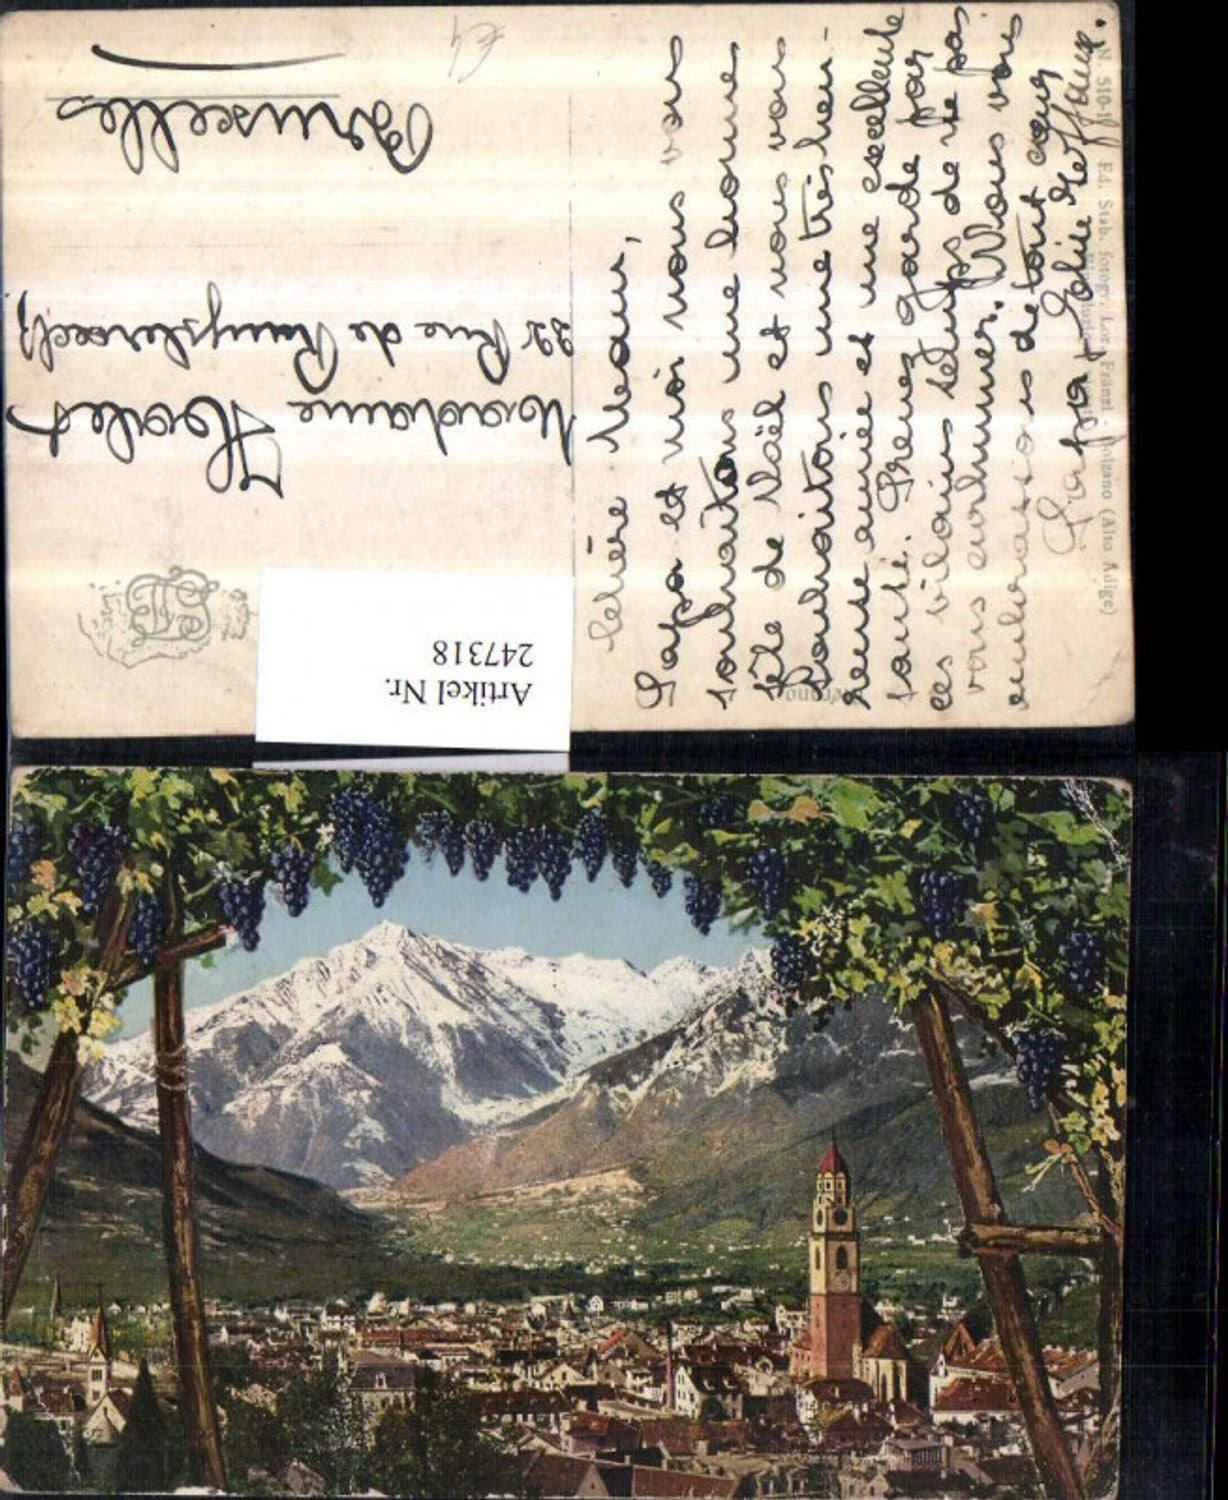 Chère Madame,
Papa et moi nous vous
souhaitons une bonne
fête de Noël et nous vous
souhaitons une très heu-
reuse année et une excellente
santé. Prenez garde par
ces vilains temps de ne pas
vous enrhumer. Nous vous
embrassons de tout cœur
Papa et
Madame
22 Rue de
Bruxelles
N. 510-1 Ed. Stab. fotogr. Lor. Fränzl - Bolzano (Alto Adige)
Merano
Artikel Nr.
247318